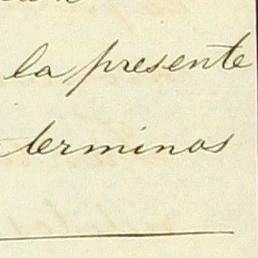 la presente
terminos